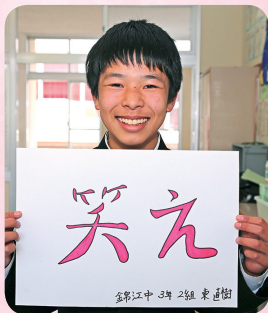 笑え
錦江中 3年 2組 東 直樹